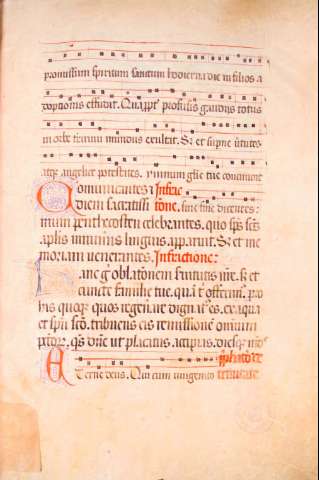 promissum spiritum sanctum hodierna die in filios a
doptionis effudit. Qua ppt profusis gaudiis totus
in orbe terrarum mundus exultat. Sz et supne uirtutes
atqz angelice potestates. ymnum glie tue concinunt
Comunicantes ⁊ Infac
diem sacratissi tione, sine fine dicentes:
mum penthecosten celebrantes. quo sps scs
aplis innumis linguis apparuit. Sz et me
moriam uenerantes. Infractione:
Hanc g oblationem seruitutis nre. sz et
cuncte familie tue. qua t offerim. pro
his quoqz quos regenerare dignatus es. ex aqua
et spu sco. tribuens eis remissione omnium
pctor. qs dne ut placatus accipias. diesqz nros
Eterne deus. Qui cum unigenito